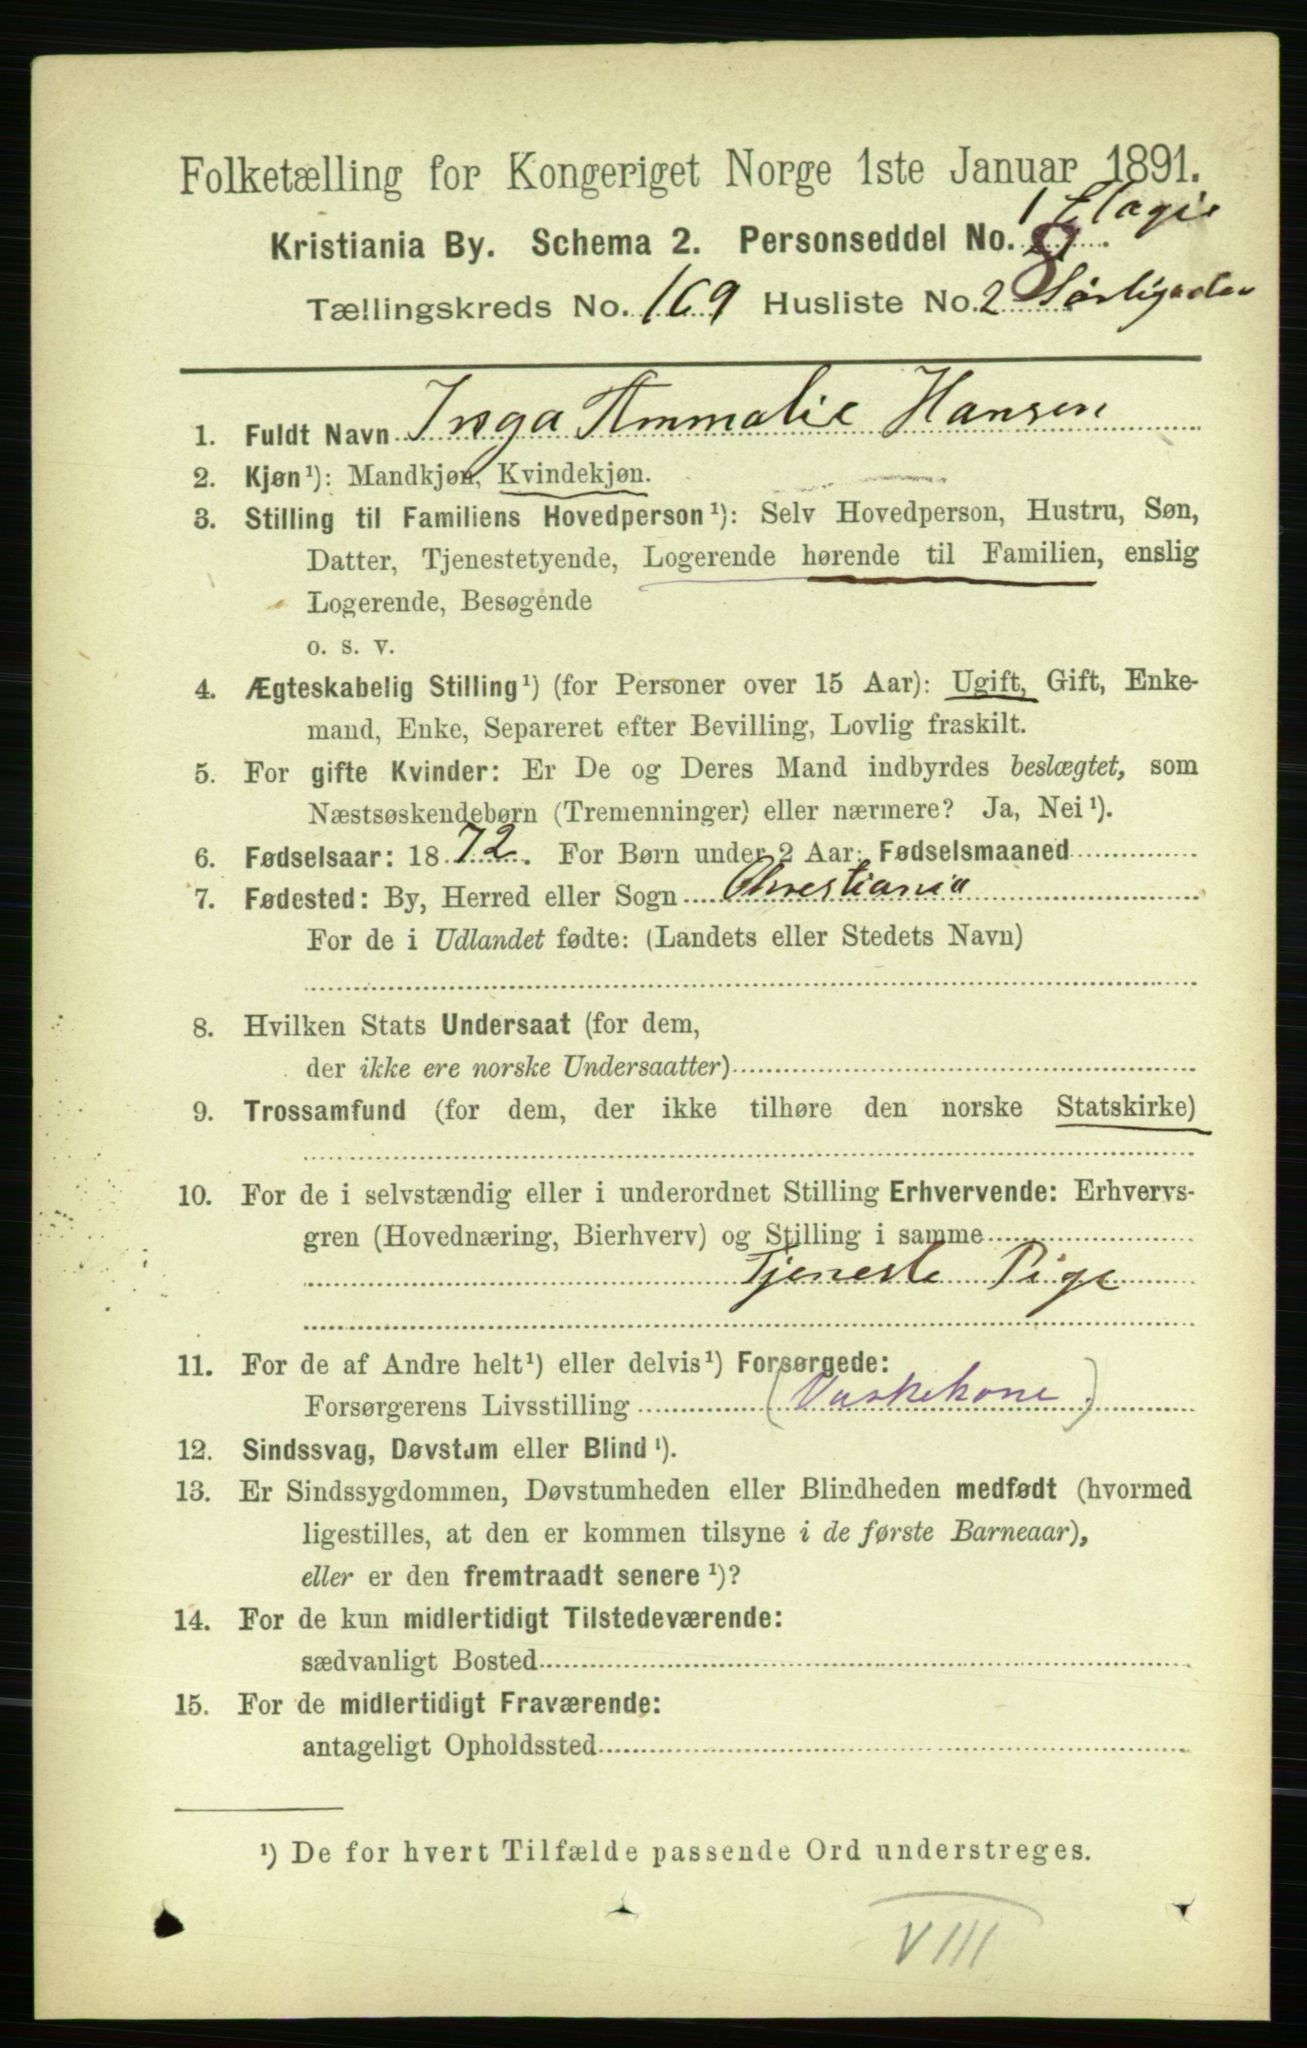 Folketælling for Kongeriget Norge 1ste Januar 1891.
1 Etagie
Kristiania By. Schema 2. Personseddel No. 8.
Tællingskreds No. 169 Husliste No. 2 Sørligaden
1. Fuldt Navn Inga Ammalie Hansen
2. Kjøn¹): Mandkjøn, Kvindekjøn.
3. Stilling til Familiens Hovedperson¹): Selv Hovedperson, Hustru, Søn,
Datter, Tjenestetyende, Logerende hørende til Familien, enslig
Logerende, Besøgende
o. s. v.
4. Ægteskabelig Stilling¹) (for Personer over 15 Aar): Ugift, Gift, Enke-
mand, Enke, Separeret efter Bevilling, Lovlig fraskilt.
5. For gifte Kvinder: Er De og Deres Mand indbyrdes beslægtet, som
Næstsøskendebørn (Tremenninger) eller nærmere? Ja, Nei¹).
6. Fødselsaar: 1872. For Børn under 2 Aar: Fødselsmaaned
7. Fødested: By, Herred eller Sogn Chrestiania
For de i Udlandet fødte: (Landets eller Stedets Navn)
8. Hvilken Stats Undersaat (for dem,
der ikke ere norske Undersaatter)
9. Trossamfund (for dem, der ikke tilhøre den norske Statskirke)
10. For de i selvstændig eller i underordnet Stilling Erhvervende: Erhvervs-
gren (Hovednæring, Bierhverv) og Stilling i samme
Tjeneste Pige
11. For de af Andre helt¹) eller delvis¹) Forsørgede:
Forsørgerens Livsstilling (Vaskekone.)
12. Sindssvag, Døvstum eller Blind¹).
13. Er Sindssygdommen, Døvstumheden eller Blindheden medfødt (hvormed
ligestilles, at den er kommen tilsyne i de første Barneaar),
eller er den fremtraadt senere¹)?
14. For de kun midlertidigt Tilstedeværende:
sædvanligt Bosted
15. For de midlertidigt Fraværende:
antageligt Opholdssted
¹) De for hvert Tilfælde passende Ord understreges.
VIII